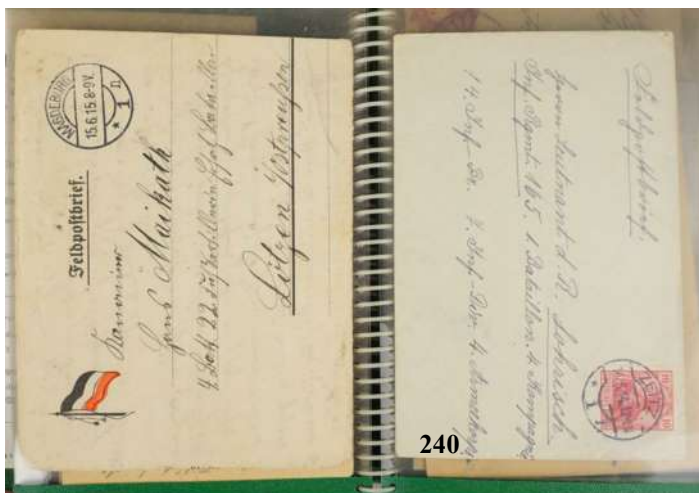 MAGDEBURG
15.6.15.8-9V.
* 1 n
Feldpostbrief.
Kanonier
Hans Maikath
Lötzen Ostpreußen
Feldpostbrief.
Herrn Leutnant d. R. Lohrisch
Inf. Regmt 165. 1. Bataillon. 4. Kompagnie
14. Inf. Br. 7. Inf. Div. 4. Armeekorps
ZEITZ
10 10
* 1
240